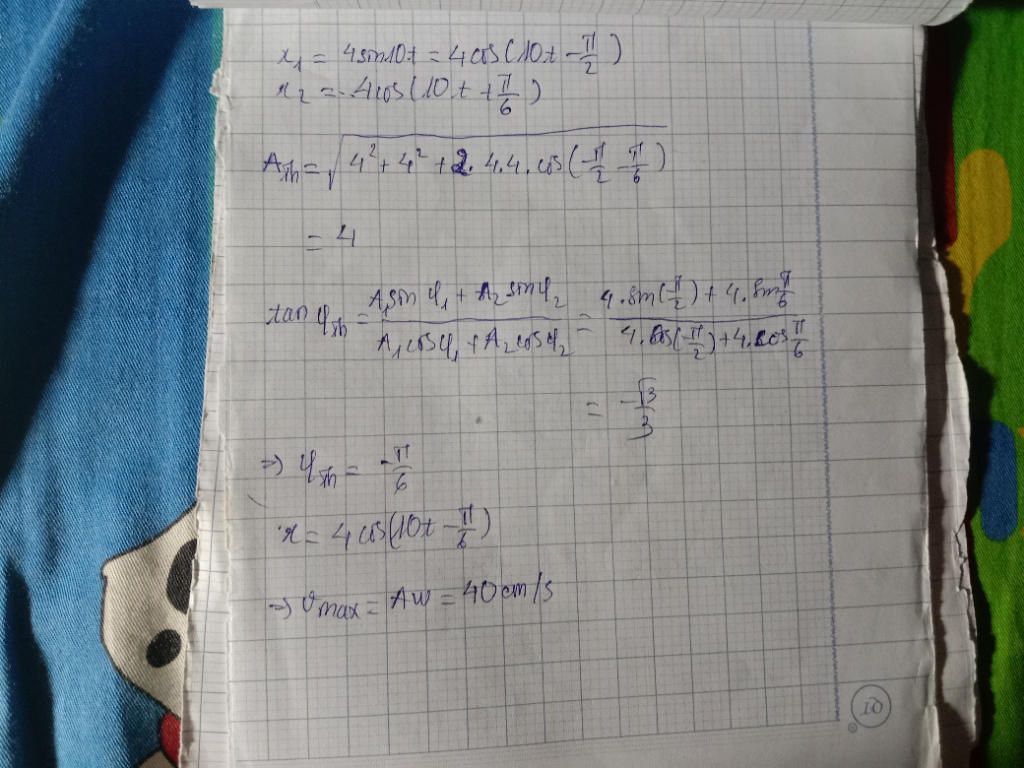 x₁ = 4sin10t = 4cos(10t - π/2)
x₂ = 4cos(10t + π/6)
Ath = √(4² + 4² + 2.4.4.cos(-π/2 - π/6))
= 4
tan φth = (A₁sin φ₁ + A₂sin φ₂)/(A₁cos φ₁ + A₂cos φ₂) = (4.sin(-π/2) + 4.sin π/6)/(4.cos(-π/2) + 4.cos π/6)
= -√3/3
=> φth = -π/6
x = 4cos(10t - π/6)
=> vmax = Aω = 40cm/s
10